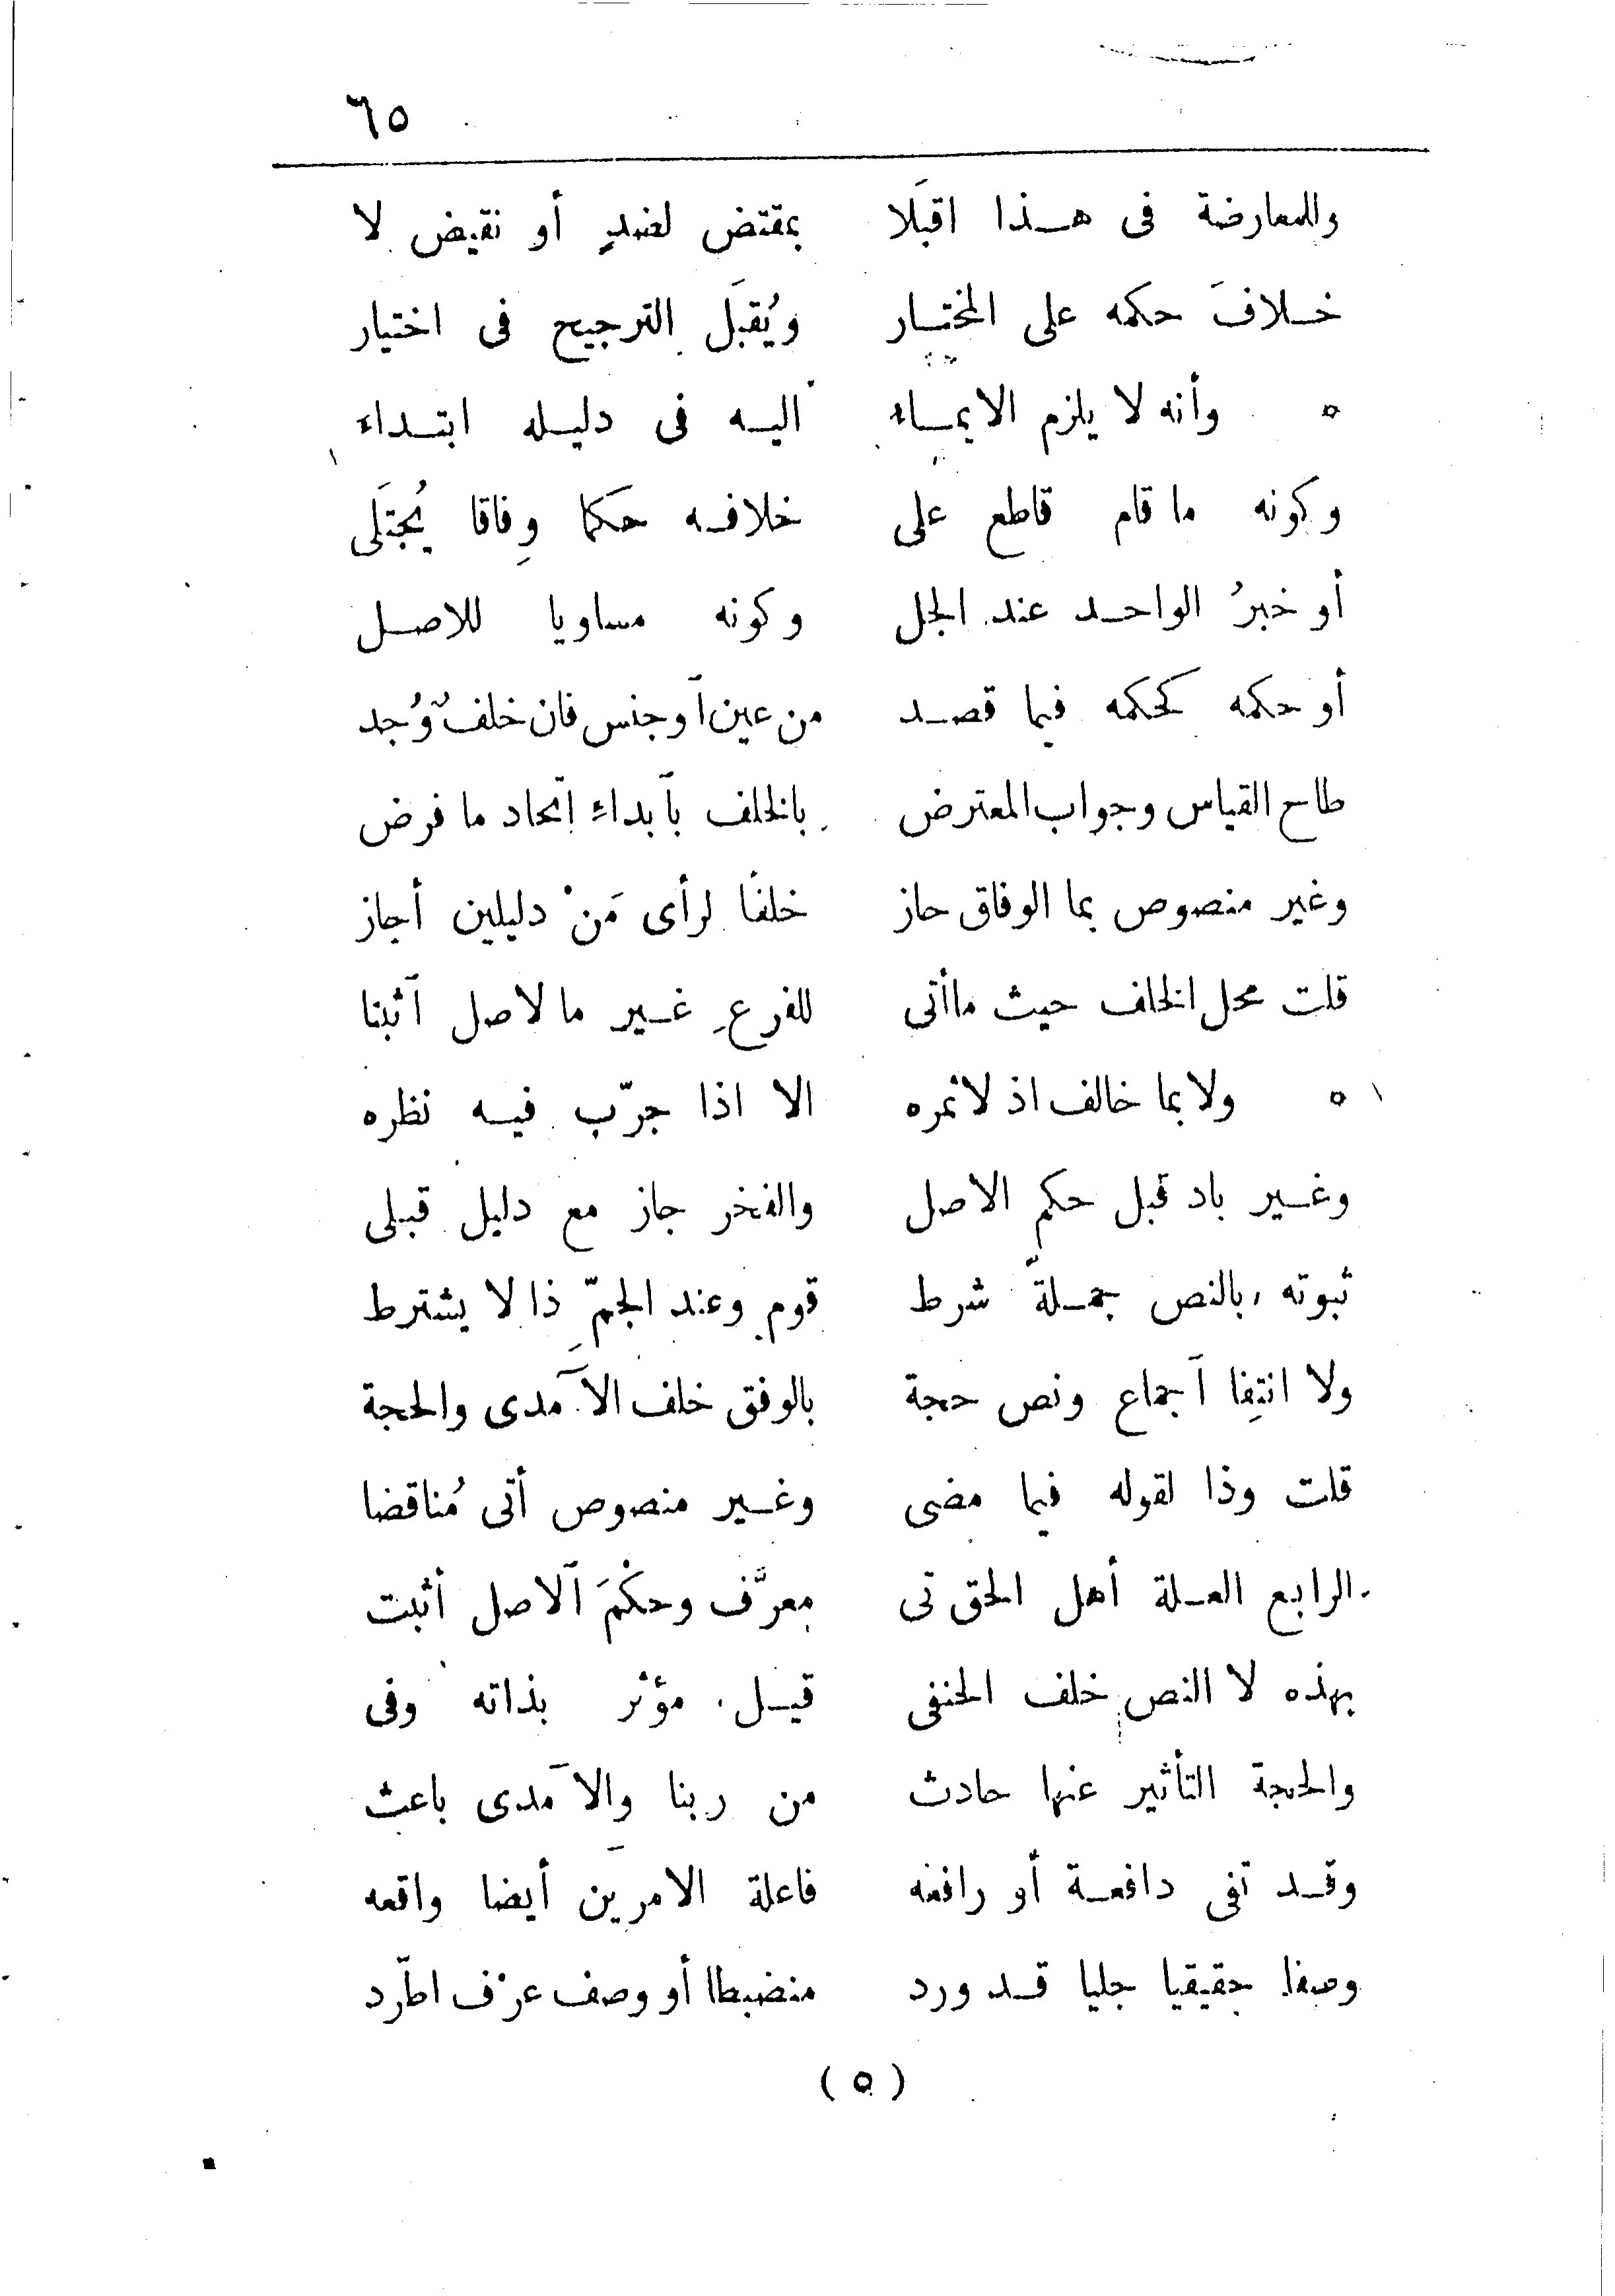 ٦٥
وللمعارضة فى هـذا اقبَلا بمقتض لضدٍ أو نقيض لا
خـلافَ حكمه على المختـار ويُقبَل الترجيح فى اختيار
٥ وأنه لا يلزم الايمـاء اليـه فى دليـله ابتـداء
وكونه ما قام قاطع على خلافـه حكما وِفاقا يُجتَلى
أو خبرُ الواحـد عند الجل وكونه مساويا للاصـل
أو حكمه كحكمه فيما قصـد من عين اَو جنس فان خلفٌ وُجد
طاح القياس وجواب المعترض بالخلف بآبداء اتحاد ما فرض
وغير منصوص بما الوفاق حاز خلفًا لرأى مَنْ دليلين أجاز
قلت محل الخلف حيث ما أتى للفرعِ غـير ما لاصل آثبتا
٥ ولا بما خالف اذ لا ثمره الا اذا جرّب فيـه نظره
وغـير باد قبل حكم الاصل والفخر جاز مع دليل قبلى
ثبوته بالنص جمـلةً شرط قوم وعند الجمِّ ذا لا يشترط
ولا انتِفا اَجماع ونص حجة بالوفق خلف الآمدى والحجة
قلت وذا لقوله فيما مضى وغـير منصوص أتى مُناقضا
الرابع العـلة أهل الحق تى معرَّف وحكمَ آلاصل أثبت
بهذه لا النص خلف الحنفى قيـل مؤثر بذاته وفى
والحجة التأثير عنها حادث من ربنا والآمدى باعث
وقـد تفى دافعـة أو رافعه فاعلة الامرين أيضا واقعه
وصفا حقيقيا جليا قـد ورد منضبطا أو وصف عرْف اطّرد
(٥)